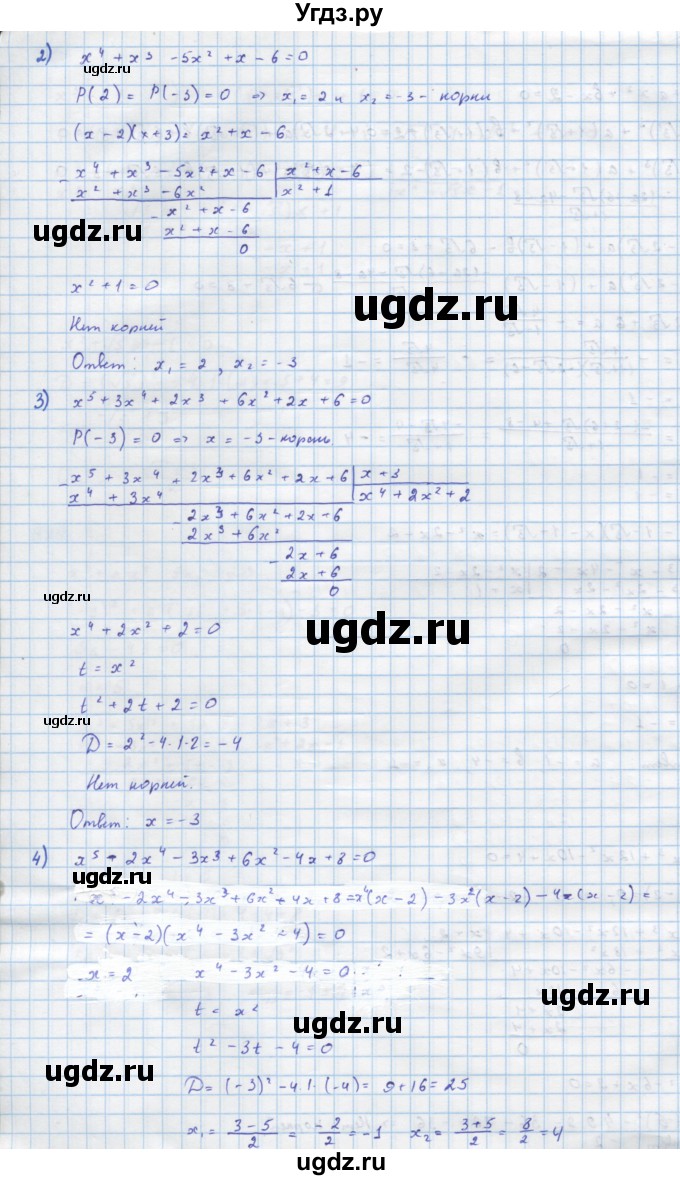 Угдз.ру
2) x⁴ + x³ - 5x² + x - 6 = 0
ugdz.ru
P(2) = P(-3) = 0 => x₁ = 2 и x₂ = -3 - корни
(x - 2)(x + 3) = x² + x - 6
- x⁴ + x³ - 5x² + x - 6 | x² + x - 6
x² + x³ - 6x² | x² + 1
- x² + x - 6
ugdz.ru
x² + x - 6
0
x² + 1 = 0
ugdz.ru
Нет корней
Ответ: x₁ = 2, x₂ = -3
ugdz.ru
3) x⁵ + 3x⁴ + 2x³ + 6x² + 2x + 6 = 0
P(-3) = 0 => x = -3 - корень
- x⁵ + 3x⁴ + 2x³ + 6x² + 2x + 6 | x + 3
x⁴ + 3x⁴ | x⁴ + 2x² + 2
- 2x³ + 6x² + 2x - 6
2x³ + 6x²
- 2x + 6
2x + 6
0
ugdz.ru
x⁴ + 2x² + 2 = 0
ugdz.ru
t = x²
t² + 2t + 2 = 0
ugdz.ru
D = 2² - 4 · 1 · 2 = -4
Нет корней.
Ответ: x = -3
4) x⁵ - 2x⁴ - 3x³ + 6x² - 4x + 8 = 0
ugdz.ru
- 2x⁴ - 3x³ + 6x² + 4x + 8 = x⁴(x - 2) - 3x²(x - 2) - 4 (x - 2) =
= (x - 2)(x⁴ - 3x² - 4) = 0
x = 2 x⁴ - 3x² - 4 = 0
ugdz.ru
t = x²
ugdz.ru
t² - 3t - 4 = 0
ugdz.ru
D = (-3)² - 4 · 1 · (-4) = 9 + 16 = 25
x₁ = (3 - 5)/2 = -2/2 = -1 x₂ = (3 + 5)/2 = 8/2 = 4
ugdz.ru
ugdz.ru